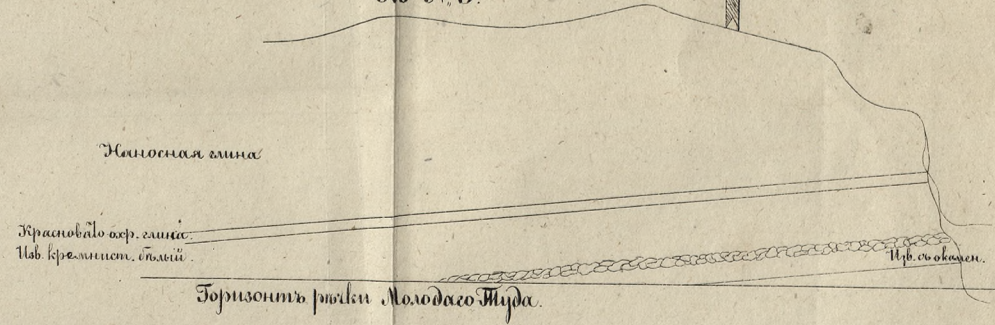 Наносная глина
Красновато-охр. глина.
Изв. кремнист. бѣлый
Изв. съ окамен.
Горизонтъ рѣчки Молодаго Туда.